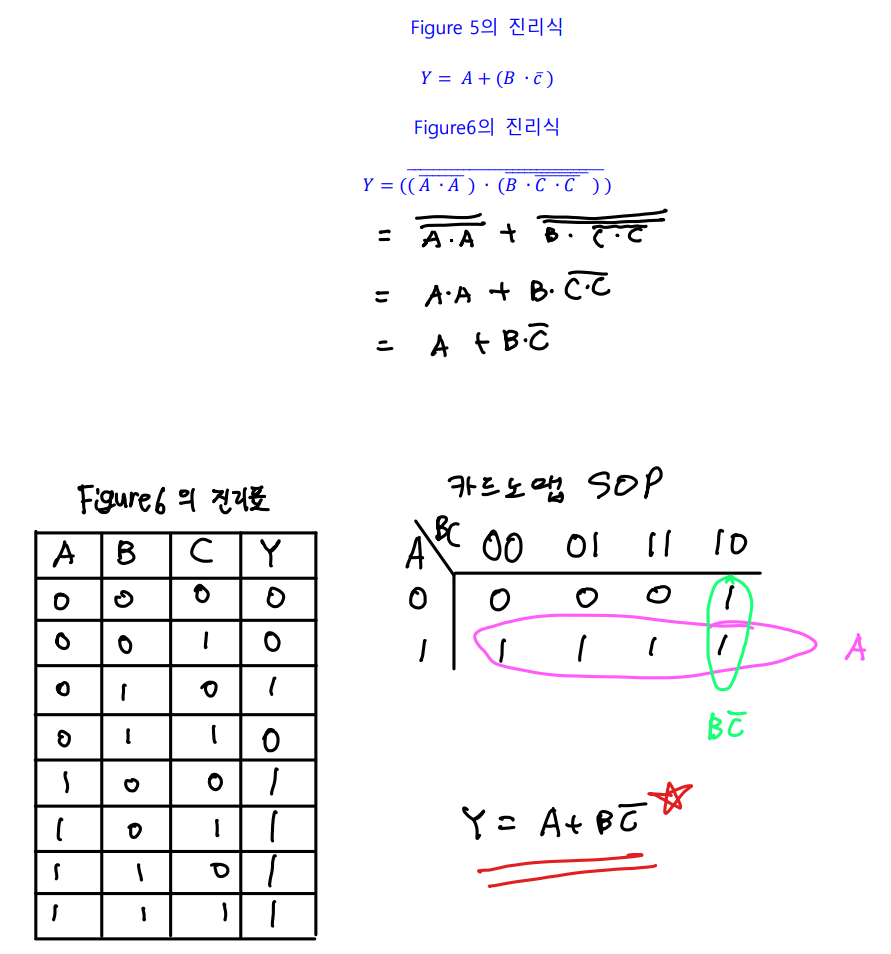 Figure 5의 진리식
Y = A + (B · c̄ )
Figure6의 진리식
Y = (( \overline{\overline{A · A} ) · (\overline{B · \overline{C · C}} ) })
= \overline{\overline{A·A}} + \overline{\overline{B · \overline{C·C}}}
= A·A + B·\overline{C·C}
= A + B·C̄
Figure6의 진리표
A B C Y
0 0 0 0
0 0 1 0
0 1 0 1
0 1 1 0
1 0 0 1
1 0 1 1
1 1 0 1
1 1 1 1
카르노맵 SOP
A\BC 00 01 11 10
0 0 0 0 1
1 1 1 1 1 A
BC̄
Y = A+BC̄